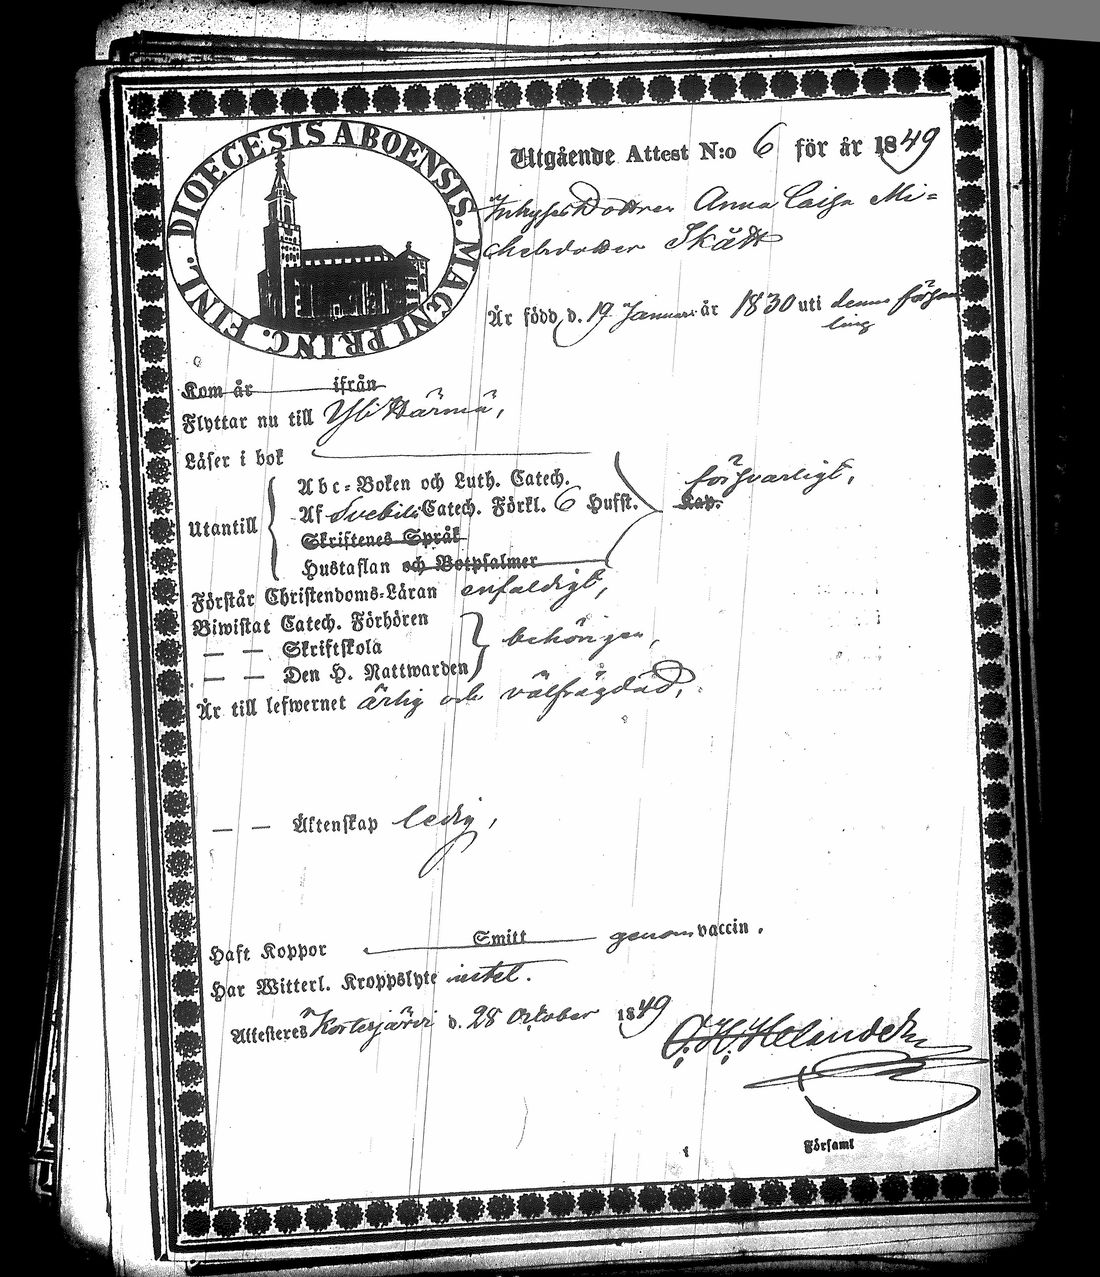 DIOECESIS ABOENSIS. MAGNI PRINC. FINL.
Utgående Attest N:o 6 för år 1849
InhysesDottren Anna Caisa Mi=
chelsdotter Skått
Är född d. 19 Januari år 1830 uti denna försam
ling
Kom år ifrån
Flyttar nu till Yli Härmä,
Läser i bok
försvarligt,
Abc=Boken och Luth. Catech.
Utantill Af Svebilii Catech. Förkl. 6 Hufst. Kap.
Skriftenes Språk
Hustaflan och Botpsalmer
Förstår Christendoms=Läran enfaldigt,
Biwistat Catech. Förhören
— — Skriftskola behörigen,
— — Den H. Nattwarden
Är till lefwernet ärlig och välfrägdad,
— — Äktenskap ledig,
Haft Koppor Smitt genom vaccin.
Har Witterl. Kroppslyte intet.
Attesteres Kortesjärvi d. 28 October 1849
C. H. Helander
Församl